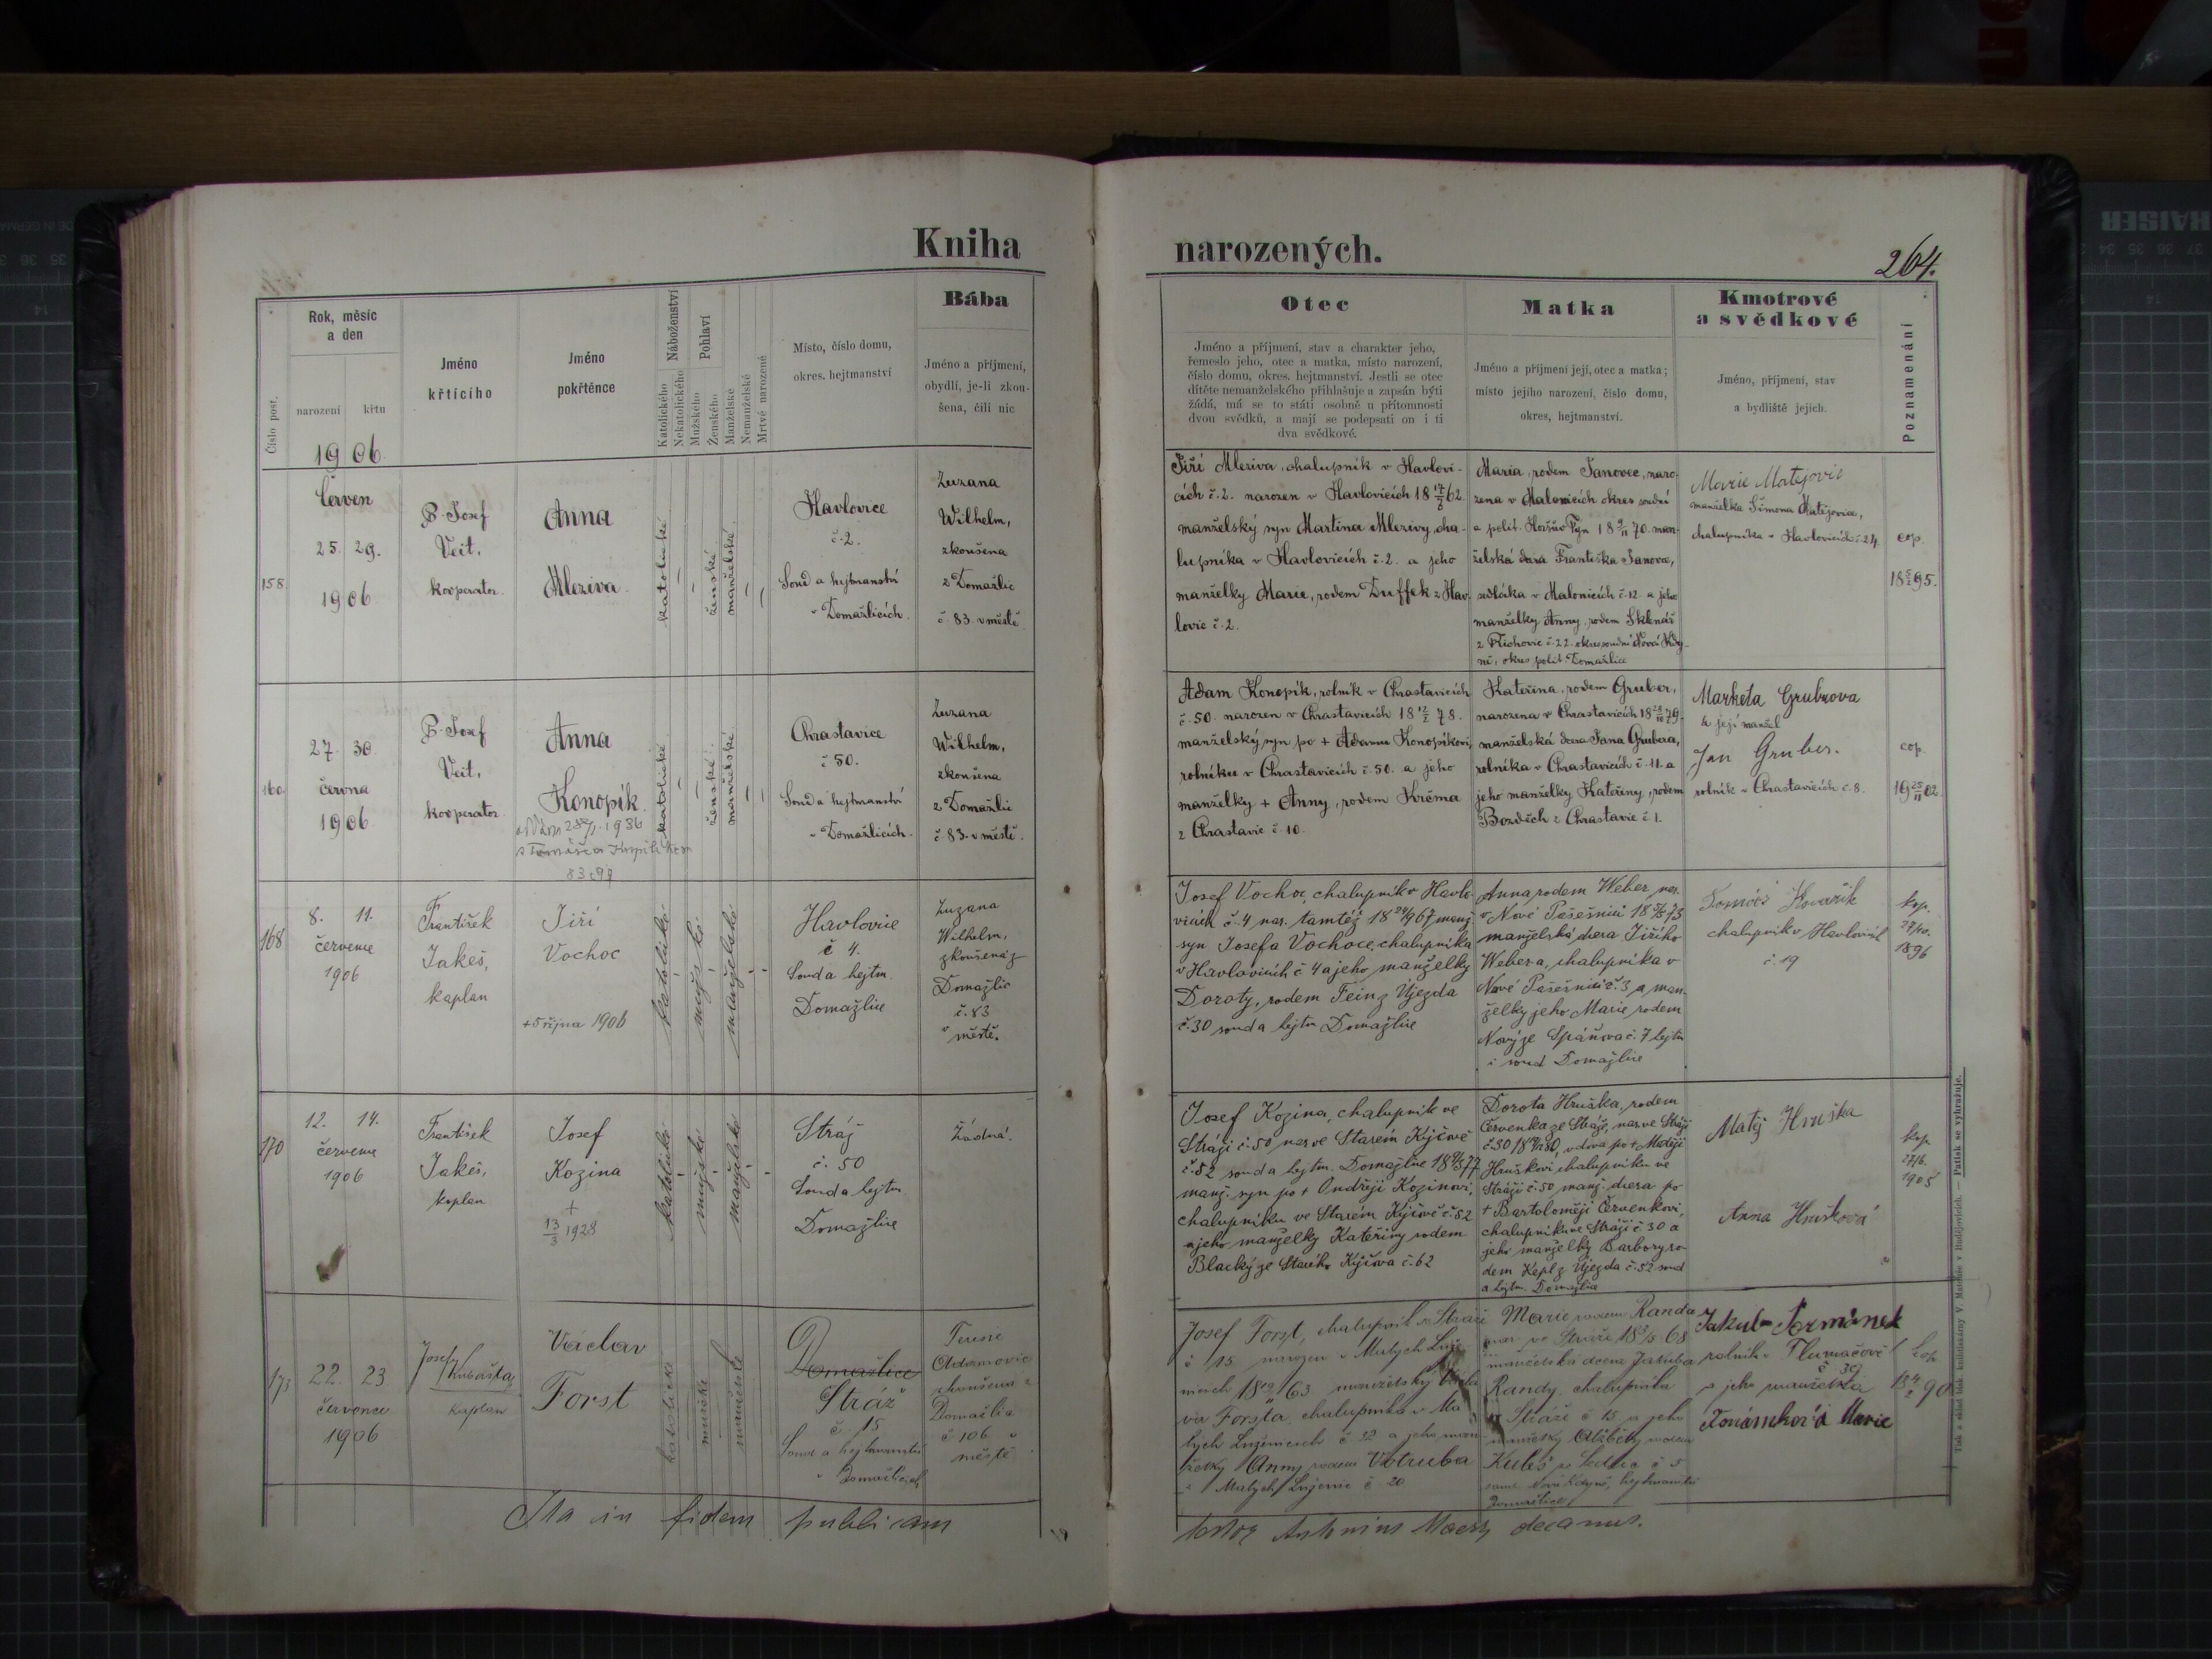 Kniha narozených.
264.
Číslo post.
Rok, měsíc
a den
narození
křtu
1906
Jméno
křtícího
Jméno
pokřtěnce
Náboženství
Katolického
Nekatolického
Pohlaví
Mužského
Ženského
Manželské
Nemanželské
Mrtvě narozené
Místo, číslo domu,
okres. hejtmanství
Bába
Jméno a příjmení,
obydlí, je-li zkou-
šena, čili nic
Otec
Jméno a příjmení, stav a charakter jeho,
řemeslo jeho, otec a matka, místo narození,
číslo domu, okres. hejtmanství. Jestli se otec
dítěte nemanželského přihlašuje a zapsán býti
žádá, má se to státi osobně u přítomnosti
dvou svědků, a mají se podepsati on i ti
dva svědkové.
Matka
Jméno a příjmení její, otec a matka;
místo jejího narození, číslo domu,
okres, hejtmanství.
Kmotrové
a svědkové
Jméno, příjmení, stav
a bydliště jejich.
Poznamenání
158
Červen
25. 29.
1906
P. Josef
Veit,
kooperator.
Anna
Mleziva.
katolické
ženské
manželské
Havlovice
č. 2.
Soud a hejtmanství
v Domažlicích.
Zuzana
Wilhelm,
zkoušena
z Domažlic
č. 83 v městě
Jiří Mleziva, chalupník v Havlovi-
cích č. 2. narozen v Havlovicích 18 17/8 62.
manželský syn Martina Mlezivy, cha-
lupníka v Havlovicích č. 2. a jeho
manželky Marie, rodem Duffek z Hav-
lovic č. 2.
Maria, rodem Janovec, naro-
zena v Malonicích okres soudní
a polit. Horšův Týn 18 9/11 70. man-
želská dcera Františka Janovce,
sedláka v Malonicích č. 12. a jeho
manželky Anny, rodem Sklenář
z Němčic č. 22. okres soudní Nová Kdy-
ně, okres polit. Domažlice
Marie Matějovic
manželka Šimona Matějovice,
chalupníka v Havlovicích č. 24.
cop.
18 5/2 95.
160
27. 30.
června
1906
P. Josef
Veit,
kooperator
Anna
Konopík.
katolické
ženské
manželské
Chrastavice
č. 50.
Soud a hejtmanství
v Domažlicích.
Zuzana
Wilhelm,
zkoušena
z Domažlic
č. 83. v městě.
Adam Konopík, rolník v Chrastavicích
č. 50. narozen v Chrastavicích 18 12/2 78.
manželský syn po + Adamu Konopíkovi,
rolníku v Chrastavicích č. 50. a jeho
manželky + Anny, rodem Krčma
z Chrastavic č. 10.
Kateřina, rodem Gruber,
narozena v Chrastavicích 18 28/10 79.
manželská dcera Jana Grubera,
rolníka v Chrastavicích č. 11. a
jeho manželky Kateřiny, rodem
Bozděch z Chrastavic č. 1.
Marketa Grubrova
a její manžel
Jan Gruber.
rolník v Chrastavicích č. 8.
cop.
19 25/11 02.
168
8. 11.
července
1906
František
Jakeš,
kaplan
Jiří
Vochoc
+5 října 1906
katolické
mužské
manželské
Havlovice
č 4.
Soud a hejtm.
Domažlice
Zuzana
Wilhelm,
zkoušená z
Domažlic
č. 83
v
městě.
Josef Vochoc, chalupník v Havlo-
vicích č. 4 nar. tamtéž 18 24/9 67 manž.
syn Josefa Vochoce, chalupníka
v Havlovicích č 4 a jeho manželky
Doroty, rodem Fein z Újezda
č. 30 soud a hejtm Domažlice
Anna rodem Weber, nar.
v Nové Pasešnici
manželská dcera Jiřího
Webera, chalupníka v
Nové Pasešnici č. 3 a man-
želky jeho Marie rodem
Nový ze Spáňova č. 7 hejtm
i soud Domažlice
Kovařík
chalupník v Havlovicích
č. 19
kop.
1896
170
12. 14.
července
1906
František
Jakeš,
kaplan
Josef
Kozina
+
13/3 1928
katolické
mužské
manželské
Stráž
č. 50
Soud a hejtm
Domažlice
Žádná.
Josef Kozina, chalupník ve
Stráži č. 50 nar. ve Starém Kýčově
č. 52 soud a hejtm. Domažlice
manž. syn po + Ondřeji Kozinovi,
chalupníku ve Starém Kýčově č. 52
a jeho manželky Kateřiny rodem
Blacký ze Starého Kýčova č. 62
Dorota Hruška, rodem
Červenka ze Stráže, nar. ve Stráži
č. 30, vdova po + Matěji
Hruškovi chalupníku ve
Stráži č. 50 manž. dcera po
+ Bartoloměji Červenkovi,
chalupníku ve Stráži č 30 a
jeho manželky Barbory ro-
dem Kepl z Újezda č. 52 soud
a hejtm. Domažlice
Matěj Hruška
Anna Hrušková
kop.
27/6.
1905
173
22. 23
července
1906
Josef
Kubašta,
kaplan
Václav
Forst
katolické
mužské
manželské
Domažlice
Stráž
č. 15
Soud a hejtmanství
v Domažlicích
Terezie
Adamovic
zkoušena z
Domažlic
č. 106 v
městě
Josef Forst, chalupník v Stráži
č 15 narozen v Malých Luže-
nicích 18 63 manželský
Forsta, chalupníka v Ma-
lých Luženicích č 32 a jeho man-
želky Anny rodem Votruba
z Malých Luženic č 20
Marie rodem Randa
nar. ve Stráži 68
manželská dcera Jakuba
Randy, chalupníka
v Stráži č 15 a jeho
manželky Alžběty rodem
Kubeš z Sedlic č 5
soud Nová Kdyně, hejtmanství
Domažlice
Jakub Formánek
rolník v Tlumačově
č 30
a jeho manželka
Formánková Marie
kop
90
Ita in fidem publicam
testor Antonius decanus.
Tisk a sklad knihtiskárny V. Maťhie v Budějovicích. — Patisk se vyhražuje.